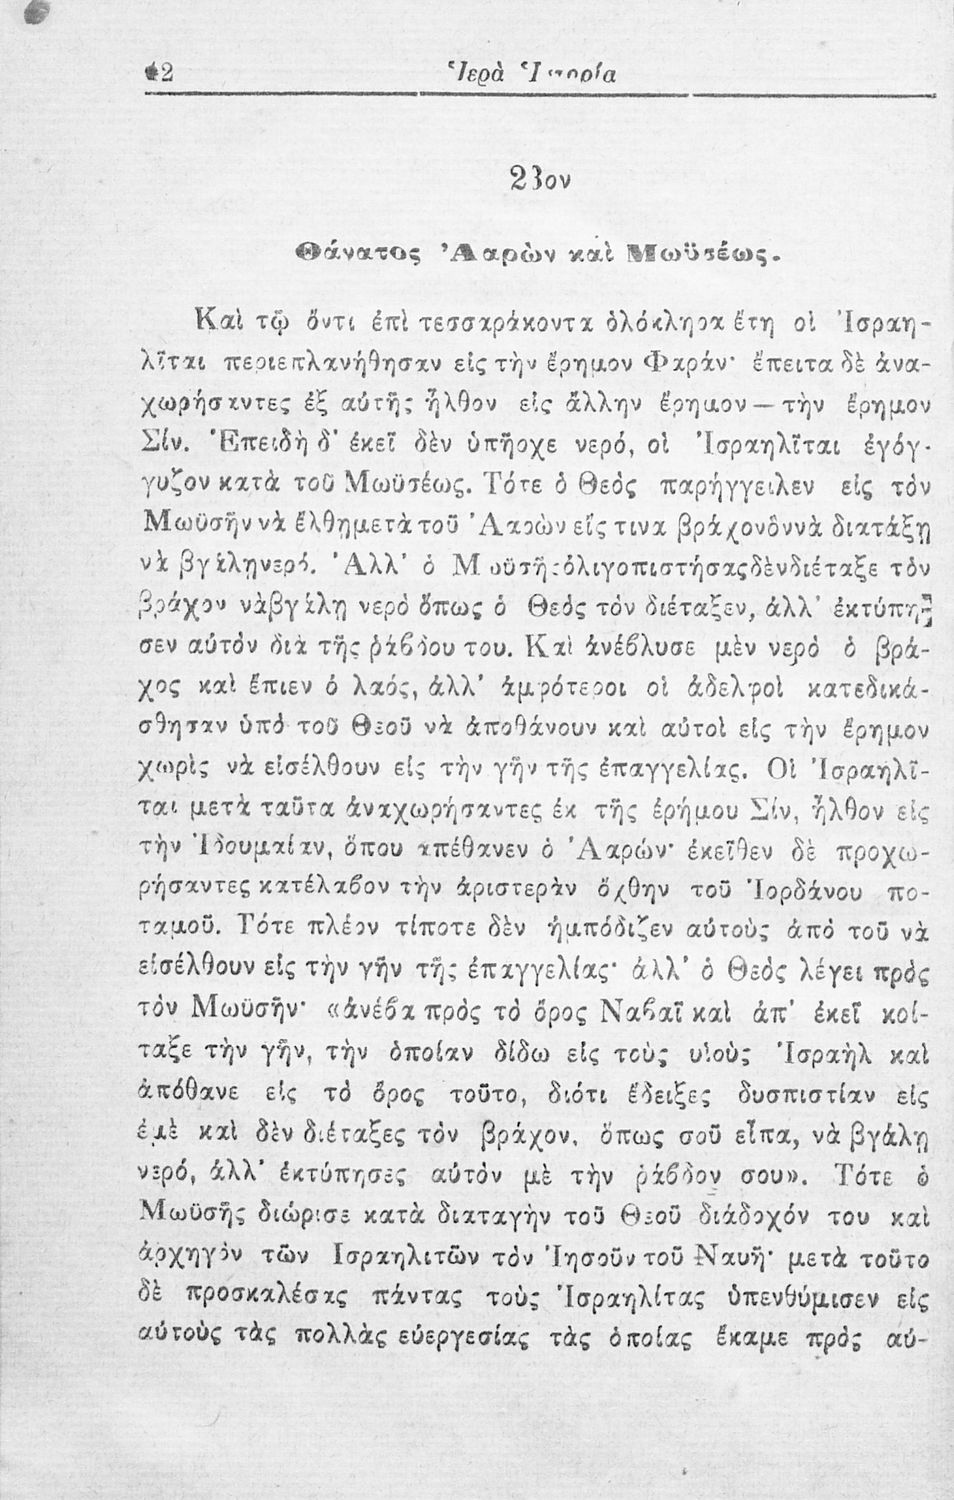 42 Ἱερὰ Ἱστορία
23ον
Θάνατος Ἀαρὼν καὶ Μωϋσέως.
Καὶ τῷ ὄντι ἐπὶ τεσσαράκοντα ὁλόκληρα ἔτη οἱ Ἰσραη-
λῖται περιεπλανήθησαν εἰς τὴν ἔρημον Φαράν· ἔπειτα δὲ ἀνα-
χωρήσαντες ἐξ αὐτῆς ἦλθον εἰς ἄλλην ἔρημον — τὴν ἔρημον
Σίν. Ἐπειδὴ δ' ἐκεῖ δὲν ὑπῆρχε νερό, οἱ Ἰσραηλῖται ἐγόγ-
γυζον κατὰ τοῦ Μωϋσέως. Τότε ὁ Θεὸς παρήγγειλεν εἰς τὸν
Μωϋσῆν νὰ ἔλθῃ μετὰ τοῦ Ἀαρὼν εἴς τινα βράχον ὃν νὰ διατάξῃ
νὰ βγάλῃ νερό. Ἀλλ' ὁ Μωϋσῆς ὀλιγοπιστήσας δὲν διέταξε τὸν
βράχον νὰ βγάλῃ νερὸ ὅπως ὁ Θεὸς τὸν διέταξεν, ἀλλ' ἐκτύπη-
σεν αὐτὸν διὰ τῆς ράβδου του. Καὶ ἀνέβλυσε μὲν νερὸ ὁ βρά-
χος καὶ ἔπιεν ὁ λαός, ἀλλ' ἀμφότεροι οἱ ἀδελφοὶ κατεδικά-
σθησαν ὑπὸ τοῦ Θεοῦ νὰ ἀποθάνουν καὶ αὐτοὶ εἰς τὴν ἔρημον
χωρὶς νὰ εἰσέλθουν εἰς τὴν γῆν τῆς ἐπαγγελίας. Οἱ Ἰσραηλῖ-
ται μετὰ ταῦτα ἀναχωρήσαντες ἐκ τῆς ἐρήμου Σίν, ἦλθον εἰς
τὴν Ἰδουμαίαν, ὅπου ἀπέθανεν ὁ Ἀαρών· ἐκεῖθεν δὲ προχω-
ρήσαντες κατέλαβον τὴν ἀριστερὰν ὄχθην τοῦ Ἰορδάνου πο-
ταμοῦ. Τότε πλέον τίποτε δὲν ἠμπόδιζεν αὐτοὺς ἀπὸ τοῦ νὰ
εἰσέλθουν εἰς τὴν γῆν τῆς ἐπαγγελίας· ἀλλ' ὁ Θεὸς λέγει πρὸς
τὸν Μωϋσῆν· «ἀνέβα πρὸς τὸ ὄρος Ναβαῖ καὶ ἀπ' ἐκεῖ κοί-
ταξε τὴν γῆν, τὴν ὁποίαν δίδω εἰς τοὺς υἱοὺς Ἰσραὴλ καὶ
ἀπόθανε εἰς τὸ ὄρος τοῦτο, διότι ἔδειξες δυσπιστίαν εἰς
ἐμὲ καὶ δὲν διέταξες τὸν βράχον, ὅπως σοῦ εἶπα, νὰ βγάλῃ
νερό, ἀλλ' ἐκτύπησες αὐτὸν μὲ τὴν ράβδον σου». Τότε ὁ
Μωϋσῆς διώρισε κατὰ διαταγὴν τοῦ Θεοῦ διάδοχόν του καὶ
ἀρχηγὸν τῶν Ισραηλιτῶν τὸν Ἰησοῦν τοῦ Ναυῆ· μετὰ τοῦτο
δὲ προσκαλέσας πάντας τοὺς Ἰσραηλίτας ὑπενθύμισεν εἰς
αὐτοὺς τὰς πολλὰς εὐεργεσίας τὰς ὁποίας ἔκαμε πρὸς αὐ-